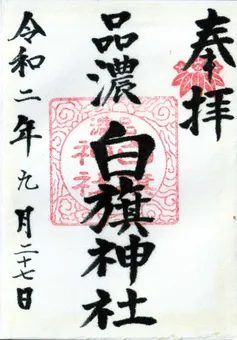 奉拝
品濃
白旗神社
令和二年九月二十七日